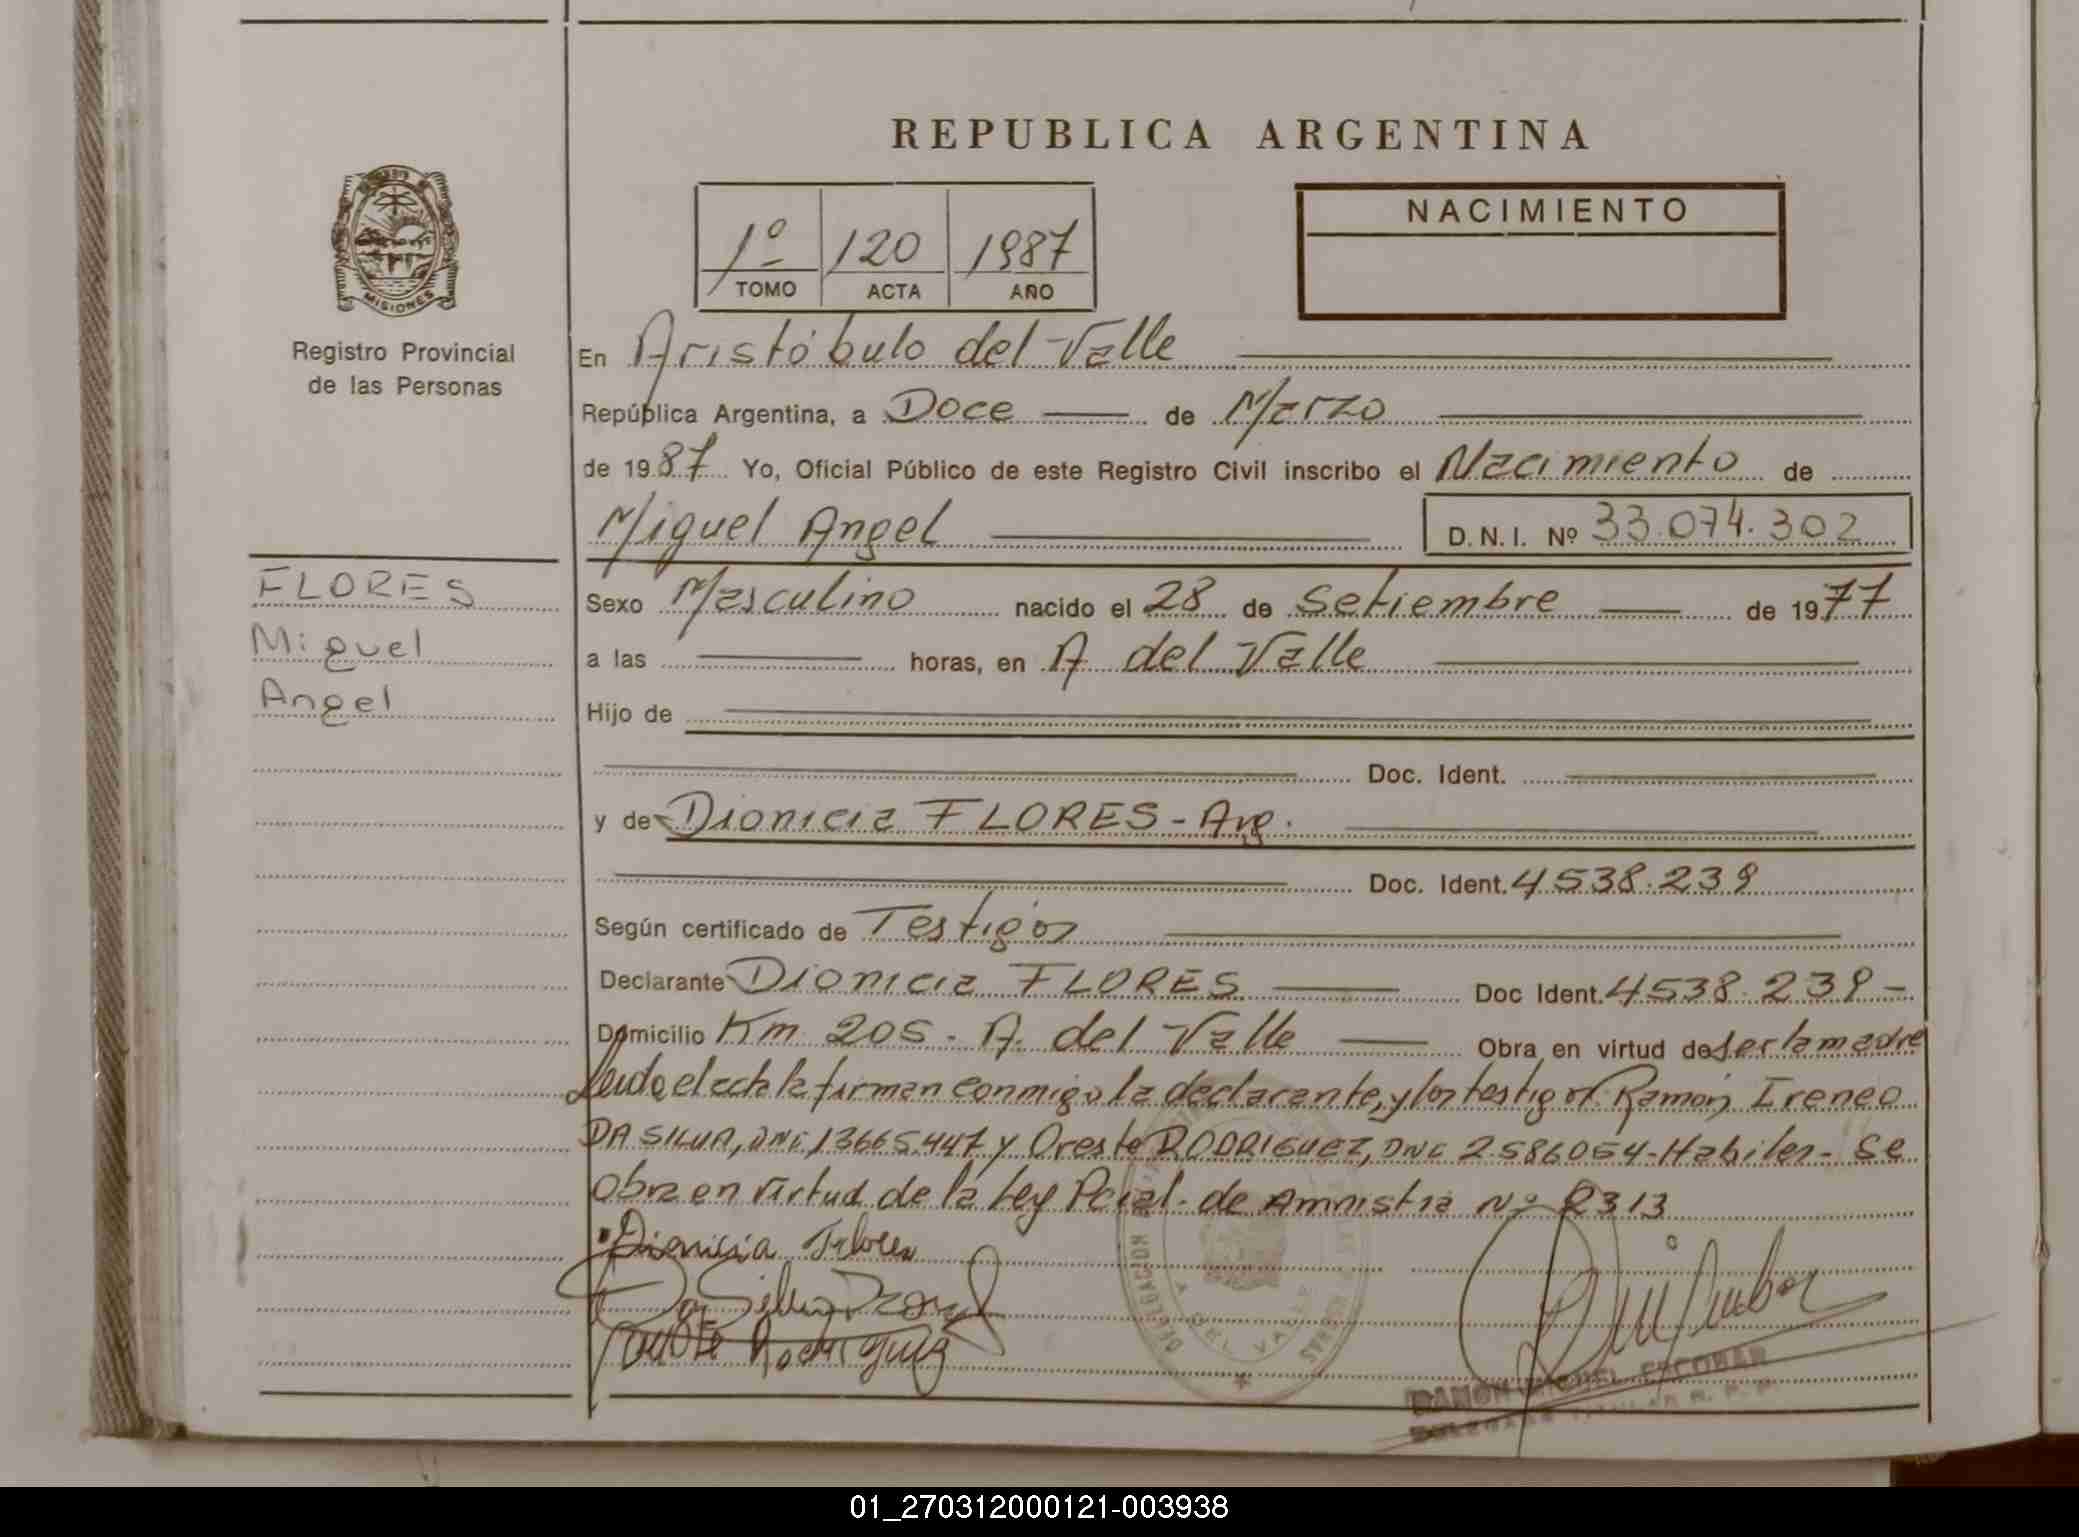 REPUBLICA ARGENTINA
1º 120 1987
TOMO ACTA AÑO
NACIMIENTO
MISIONES
Registro Provincial
de las Personas
En Aristóbulo del Valle
República Argentina, a Doce de Marzo
de 1987 Yo, Oficial Público de este Registro Civil inscribo el Nacimiento de
Miguel Angel D.N.I. Nº 33.074.302
FLORES
Miguel
Angel
Sexo Masculino nacido el 28 de Setiembre de 1977
a las horas, en A. del Valle
Hijo de
Doc. Ident.
y de Dionicia FLORES - Arg.
Doc. Ident. 4538.239
Según certificado de Testigos
Declarante Dionicia FLORES Doc Ident. 4538.239-
Domicilio Km 205 - A. del Valle Obra en virtud de ser la madre
Leida el acta la firman conmigo la declarante, y los testigos Ramón Ireneo
DA SILVA, DNI 13665.447 y Oreste RODRIGUEZ, DNI 2.586054-Habiles- Se
obra en virtud de la Ley Pcial. de Amnistia Nº 2313
Dionisia Flores
Da Silva
Rodriguez
DELEGACION
A. DEL VALLE
RAMON MIGUEL ESCOBAR
01_270312000121-003938